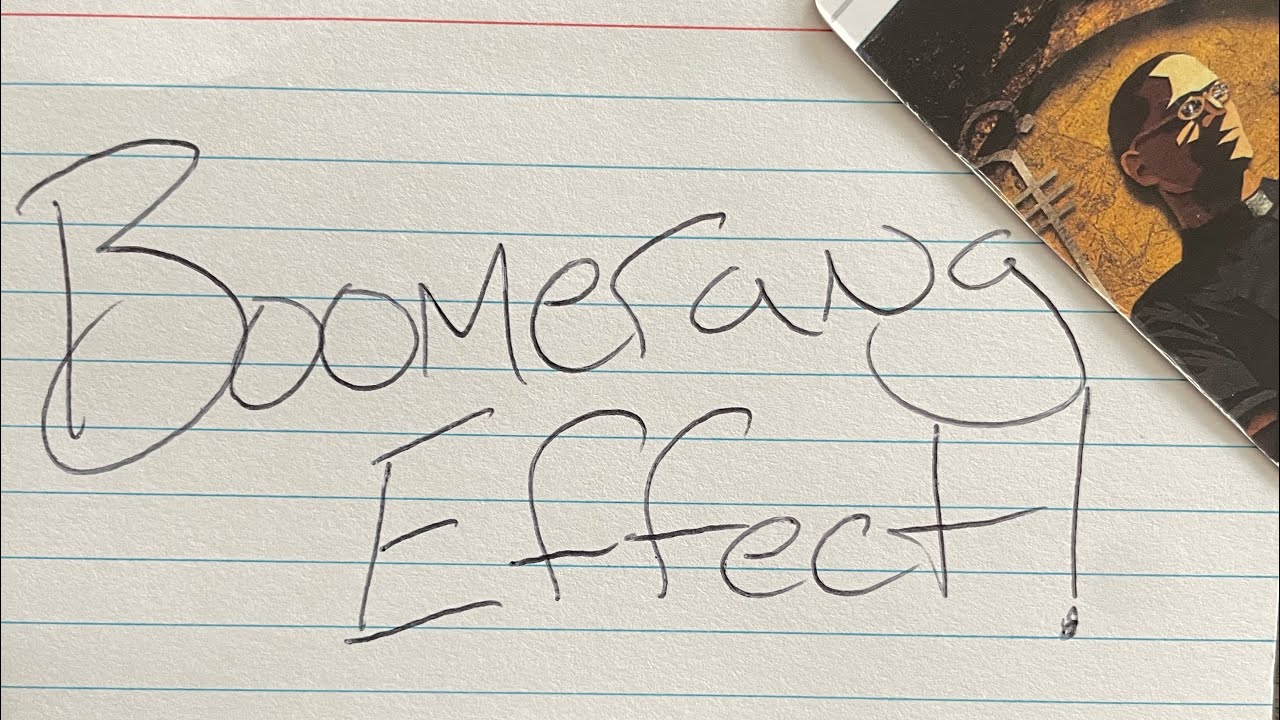 Boomerang
Effect!